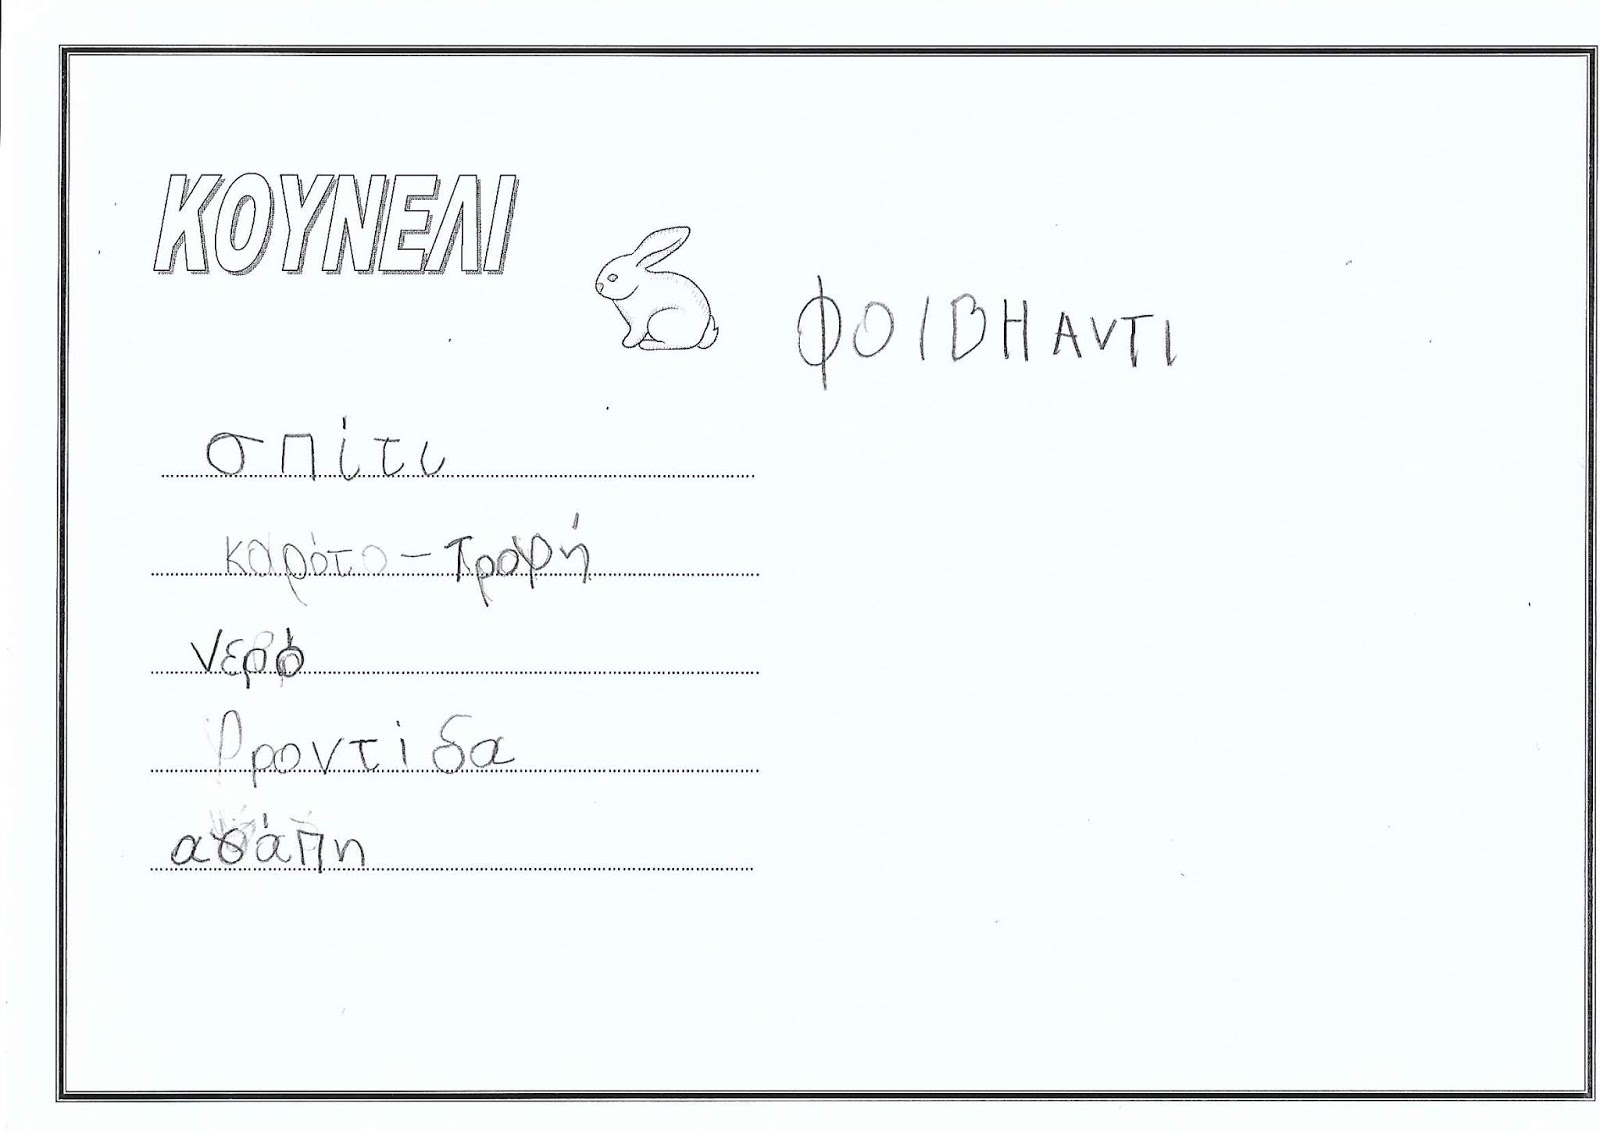 ΚΟΥΝΕΛΙ
ΦΟΙΒΗ ΑΝΤΙ
σπίτι
καρότο - τροφή
νερό
φροντίδα
ασάπη